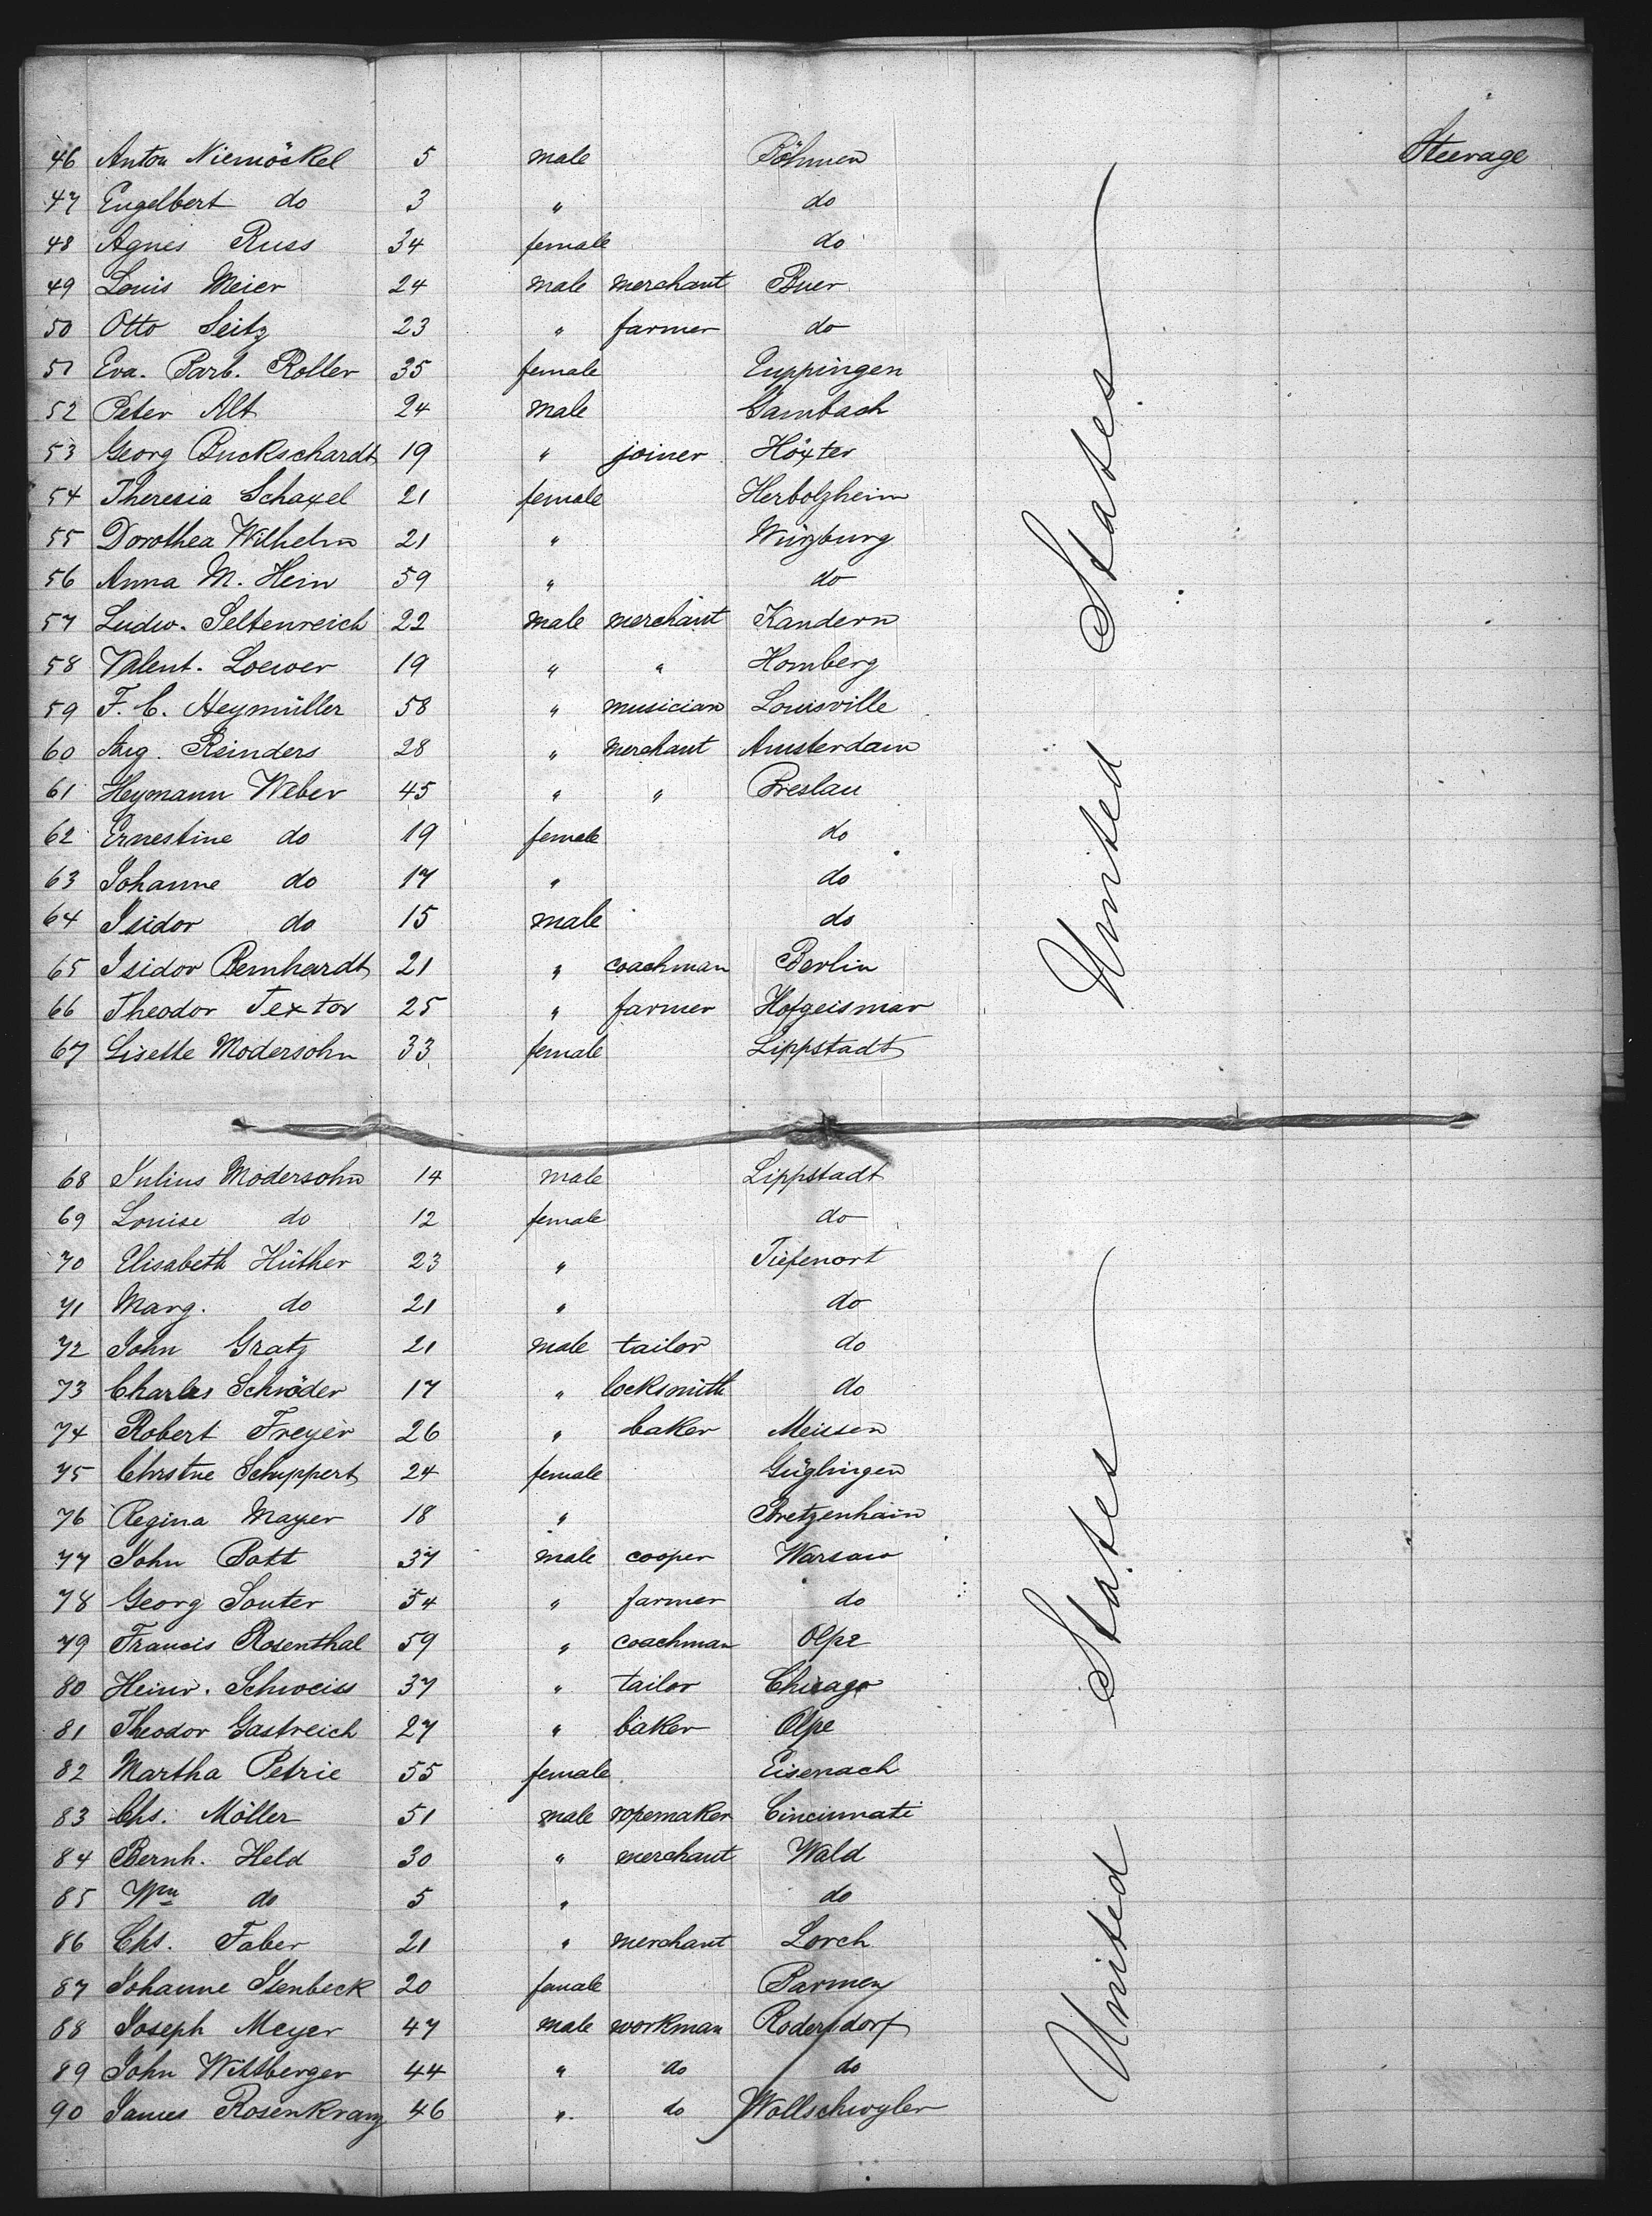 46 Anton Niemöckel 5 male Böhmen Steerage
47 Engelbert do 3 " do
48 Agnes Russ 34 female do
49 Louis Meier 24 male merchant Buer
50 Otto Seitz 23 " farmer do
51 Eva. Barb. Roller 35 female Euppingen
52 Peter Alt 24 male Gambach
53 Georg Buckschardt 19 " joiner Höxter
54 Theresia Schaxel 21 female Herbolzheim
55 Dorothea Wilhelm 21 " Würzburg
56 Anna M. Hein 59 " do
57 Ludw. Seltenreich 22 male merchant Kandern
58 Valent. Loewer 19 " " Homberg
59 F. C. Heymüller 58 " musician Louisville
60 Aug. Reinders 28 " merchant Amsterdam
61 Heymann Weber 45 " " Breslau
62 Ernestine do 19 female do
63 Johanne do 17 " do
64 Isidor do 15 male do
65 Isidor Bernhardt 21 " coachman Berlin
66 Theodor Textor 25 " farmer Hofgeismar
67 Lisette Modersohn 33 female Lippstadt
United States
68 Julius Modersohn 14 male Lippstadt
69 Louise do 12 female do
70 Elisabeth Hüther 23 " Tiefenort
71 Marg. do 21 " do
72 John Gratz 21 male tailor do
73 Charles Schröder 17 " locksmith do
74 Robert Freyer 26 " baker Meissen
75 Christne Schuppert 24 female Güglingen
76 Regina Mayer 18 " Bretzenhain
77 John Pott 37 male cooper Warsaw
78 Georg Souter 54 " farmer do
79 Francis Rosenthal 59 " coachman Olpe
80 Heinr. Schweiss 37 " tailor Chicago
81 Theodor Gastreich 27 " baker Olpe
82 Martha Petrie 55 female Eisenach
83 Chs. Möller 51 male ropemaker Cincinnati
84 Bernh. Held 30 " merchant Wald
85 Wm do 5 " do
86 Chs. Faber 21 " merchant Lorch
87 Johanne Isenbeck 20 female Barmen
88 Joseph Meyer 47 male workman Rodersdorf
89 John Wittberger 44 " do do
90 James Rosenkranz 46 " do Wollschwyler
United States